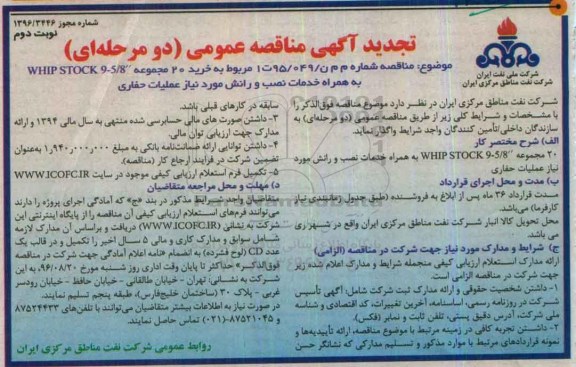 شماره مجوز ۱۳۹۶/۳۴۴۶
نوبت دوم
شرکت ملی نفت ایران
شرکت نفت مناطق مرکزی ایران
تجدید آگهی مناقصه عمومی (دو مرحله‌ای)
موضوع: مناقصه شماره م م ن/۹۵/۰۴۹ت۱ مربوط به خرید ۲۰ مجموعه WHIP STOCK 9-5/8″
به همراه خدمات نصب و رانش مورد نیاز عملیات حفاری
شرکت نفت مناطق مرکزی ایران در نظر دارد موضوع مناقصه فوق‌الذکر را
با مشخصات و شرایط کلی زیر از طریق مناقصه عمومی (دو مرحله‌ای) به
سازندگان داخلی/تأمین کنندگان واجد شرایط واگذار نماید.
الف) شرح مختصر کار
۲۰ مجموعه WHIP STOCK 9-5/8″ به همراه خدمات نصب و رانش مورد
نیاز عملیات حفاری
ب) مدت و محل اجرای قرارداد
مدت قرارداد ۳۶ ماه پس از ابلاغ به فروشنده (طبق جدول زمانبندی نیاز
کارفرما) می‌باشد.
محل تحویل کالا انبار شرکت نفت مناطق مرکزی ایران واقع در شهر ری
می باشد.
ج) شرایط و مدارک مورد نیاز جهت شرکت در مناقصه (الزامی)
ارائه مدارک استعلام ارزیابی کیفی منجمله شرایط و مدارک اعلام شده زیر
جهت شرکت در مناقصه الزامی است
۱- داشتن شخصیت حقوقی و ارائه مدارک ثبت شرکت شامل: آگهی تأسیس
شرکت در روزنامه رسمی، اساسنامه، آخرین تغییرات، کد اقتصادی و شناسه
ملی شرکت، آدرس دقیق پستی، تلفن ثابت و نمابر (فکس).
۲- داشتن تجربه کافی در زمینه مرتبط با موضوع مناقصه، ارائه تأییدیه‌ها و
نمونه قراردادهای مرتبط با موارد مذکور و تسلیم مدارکی که نشانگر حسن
سابقه در کارهای قبلی باشد.
۳- داشتن صورت های مالی حسابرسی شده منتهی به سال مالی ۱۳۹۴ و ارائه
مدارک جهت ارزیابی توان مالی.
۴- داشتن توانایی ارائه ضمانت‌نامه بانکی به مبلغ ۱,۹۴۰,۰۰۰,۰۰۰ به‌عنوان
تضمین شرکت در فرآیند ارجاع کار (مناقصه).
۵- تکمیل فرم استعلام ارزیابی کیفی موجود در سایت WWW.ICOFC.IR
د) مهلت و محل مراجعه متقاضیان
متقاضیان واجد شرایط مذکور در بند «ج» که آمادگی اجرای پروژه را دارند
می‌توانند فرم‌های استعلام ارزیابی کیفی آن مناقصه را از پایگاه اینترنتی این
شرکت به نشانی (WWW.ICOFC.IR) دریافت و براساس آن مدارک لازمه
شامل سوابق و مدارک کاری و مالی ۵ سال اخیر را تکمیل و در قالب یک
عدد CD (لوح فشرده) به انضمام «نامه اعلام آمادگی جهت شرکت در مناقصه
فوق‌الذکر» حداکثر تا پایان وقت اداری روز شنبه مورخ ۹۶/۰۸/۲۰ به این
شرکت به نشانی: تهران - خیابان طالقانی - خیابان حافظ - خیابان رودسر
غربی - پلاک ۳۰ (ساختمان خلیج‌فارس)، طبقه پنجم تسلیم نمایند.
در صورت نیاز به اطلاعات بیشتر متقاضیان می‌توانند با تلفن‌های ۸۷۵۲۴۴۳۳
و ۸۷۵۲۱۰۴۵-(۰۲۱) تماس حاصل نمایند.
روابط عمومی شرکت نفت مناطق مرکزی ایران